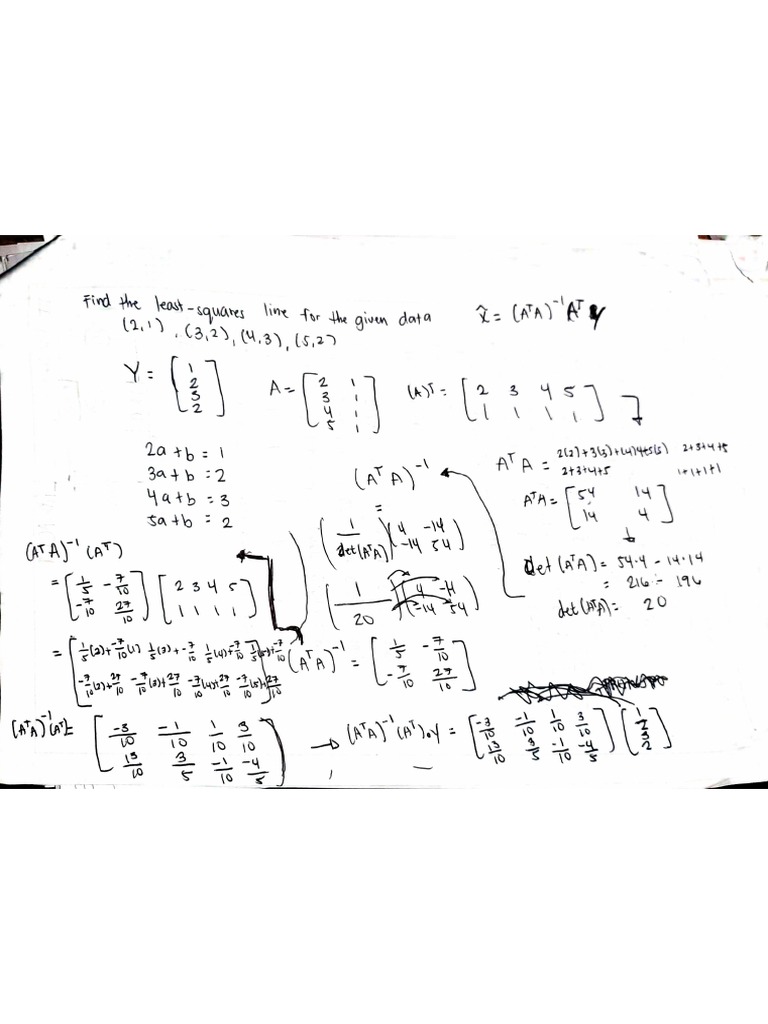 Find the least-squares line for the given data
(2,1), (3,2), (4,3), (5,2)
x̂ = (AᵀA)⁻¹Aᵀy
Y = [1 2 3 2]
A = [2 1; 3 1; 4 1; 5 1]
(A)ᵀ = [2 3 4 5; 1 1 1 1]
2a + b = 1
3a + b = 2
4a + b = 3
5a + b = 2
AᵀA = 2(2)+3(3)+(4)4+5(5) 2+3+4+5
2+3+4+5 1+1+1+1
AᵀA = [54 14; 14 4]
det(AᵀA) = 54·4 - 14·14
= 216 - 196
det(AᵀA) = 20
(AᵀA)⁻¹
=
(1/det(AᵀA)) (4 -14; -14 54)
(1/20) (4 -14; -14 54)
(AᵀA)⁻¹ = [1/5 -7/10; -7/10 27/10]
(AᵀA)⁻¹ (Aᵀ)
= [1/5 -7/10; -7/10 27/10] [2 3 4 5; 1 1 1 1]
= [1/5(2)+-7/10(1) 1/5(3)+-7/10 1/5(4)+-7/10 1/5(5)+-7/10
-7/10(2)+27/10 -7/10(3)+27/10 -7/10(4)+27/10 -7/10(5)+27/10]
(AᵀA)⁻¹(Aᵀ) = [-3/10 -1/10 1/10 3/10; 13/10 3/5 -1/10 -4/5]
→ (AᵀA)⁻¹(Aᵀ)·Y = [-3/10 -1/10 1/10 3/10; 13/10 3/5 -1/10 -4/5] (1 2 3 2)